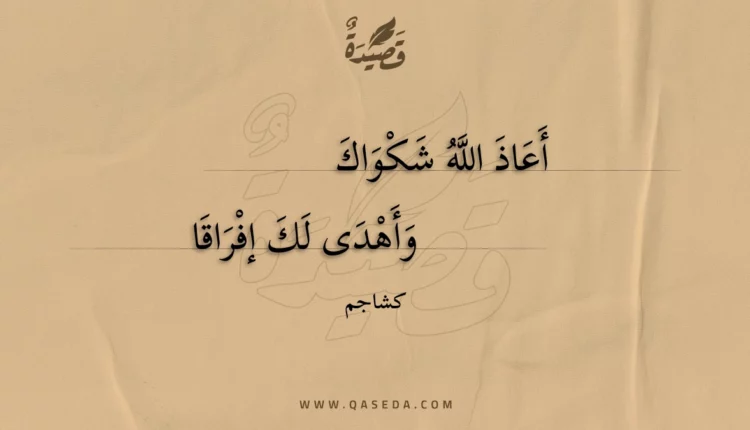 قَصِيدَةٌ
أَعَاذَ اللَّهُ شَكْوَاكَ
وَأَهْدَى لَكَ إفْرَاقَا
كشاجم
WWW.QASEDA.COM